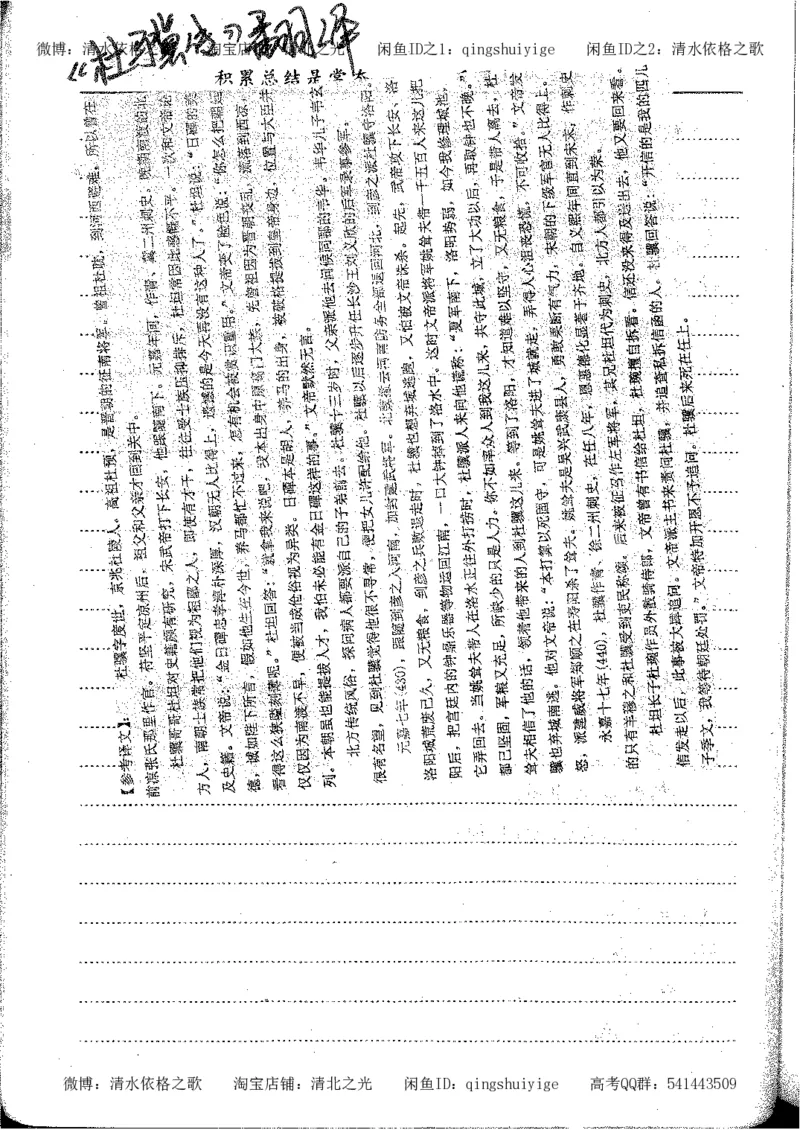 微博：清水依格之歌 淘宝店铺：清北之光 闲鱼ID之1：qingshuiyige 闲鱼ID之2：清水依格之歌
《杜骥传》翻译
积累总结异常本
【参考译文】： 杜骥字度世，京兆杜陵人。高祖杜预，是晋朝的征南将军。曾祖杜耽，到河西避难，所以曾在
前凉张氏那里作官。苻坚平定凉州后，祖父和父亲才回到关中。
杜骥哥哥杜坦对史籍颇有研究，宋武帝打下长安，他跟随南下。元嘉年间，作青、冀二州刺史，晚渐南渡的北
方人，南朝士族常把他们视为粗鄙之人，即使有才干，往往受士族压抑排斥，杜坦常因此感慨不平。一次和文帝论
及史籍。文帝说：“金日磾忠孝淳朴深厚，汉朝无人比得上，遗憾的是今天再没有这种人了。”杜坦说：“日磾的美
德，诚如陛下所言，假如他生在今世，养马都忙不过来，怎有机会被赏识重用。”文帝变了脸色说：“你怎么把朝廷
看得这么狭隘刻薄呢。”杜坦回答：“就拿我来说吧，我本出身中原高门大族，先曾祖因为晋朝丧乱，流落到西凉，
仅仅因为南渡不早，便被当成伧俗视为异类。日磾本是胡人，养马的出身，被破格提拔到皇帝身边，位置与大臣并
列。本朝虽也能提拔人才，我怕未必能有金日磾这样的事。”文帝默然无言。
北方传统风俗，探问病人都要派自己的子弟前去。杜骥十三岁时，父亲派他去问候同郡的韦华。韦华儿子韦玄
很有名望，见到杜骥觉得他很不寻常，便把女儿许配给他。杜骥以后逐步升任长沙王刘义欣的后军录事参军。
元嘉七年(430)，跟随到彦之入河南，加封建武将军。北魏撤去河南防务全部返回河北，到彦之派杜骥守洛阳。
洛阳城荒废已久，又无粮食，到彦之兵败退走时，杜骥也想弃城逃跑，又怕被文帝诛杀。起先，武帝攻下长安、洛
阳后，把宫廷内的钟鼎乐器等物运回江南，一口大钟掉到了洛水中。这时文帝派将军姚耸夫带一千五百人来这儿把
它弄回去。当姚耸夫带人在洛水正往外打捞时，杜骥派人来向他谎称：“夏军南下，洛阳势弱，如今我修理城池，
都已坚固，军粮又充足，所缺少的只是人力。你不如率众人到我这儿来，共守此城，立了大功以后，再取钟也不晚。”
耸夫相信了他的话，领着他带来的人到杜骥这儿来，等到了洛阳，才知道难以坚守，又无粮食，于是带人离去，杜
骥也弃城南逃。他对文帝说：“本打算以死固守，可是姚耸夫进了城就走，弄得人心沮丧恐慌，不可收拾。”文帝发
怒，派建威将军郑顺之在寿阳杀了耸夫。姚耸夫是吴兴武康县人，勇敢果断有气力，宋朝的下级军官无人比得上。
永嘉十七年(440)，杜骥作青、徐二州刺史，在任八年，恩惠德化显著于齐地。自义熙年间直到宋末，作刺史
的只有羊穆之和杜骥受到吏民称颂。后来被征写作左军将军，其兄杜坦代为刺史，北方人都引以为荣。
杜坦长子杜琬作员外散骑侍郎，文帝曾有书信给杜坦，杜琬擅自拆看。信还没来得及送出去，他又要回来看。
信发走以后，此事被大肆追问。文帝派主书来责问杜骥，并追查私拆信函的人，杜骥回答说：“开信的是我的四儿
子季文，我等待朝廷处罚。”文帝特加开恩不予追问。杜骥后来死在任上。
微博：清水依格之歌 淘宝店铺：清北之光 闲鱼ID：qingshuiyige 高考QQ群：541443509